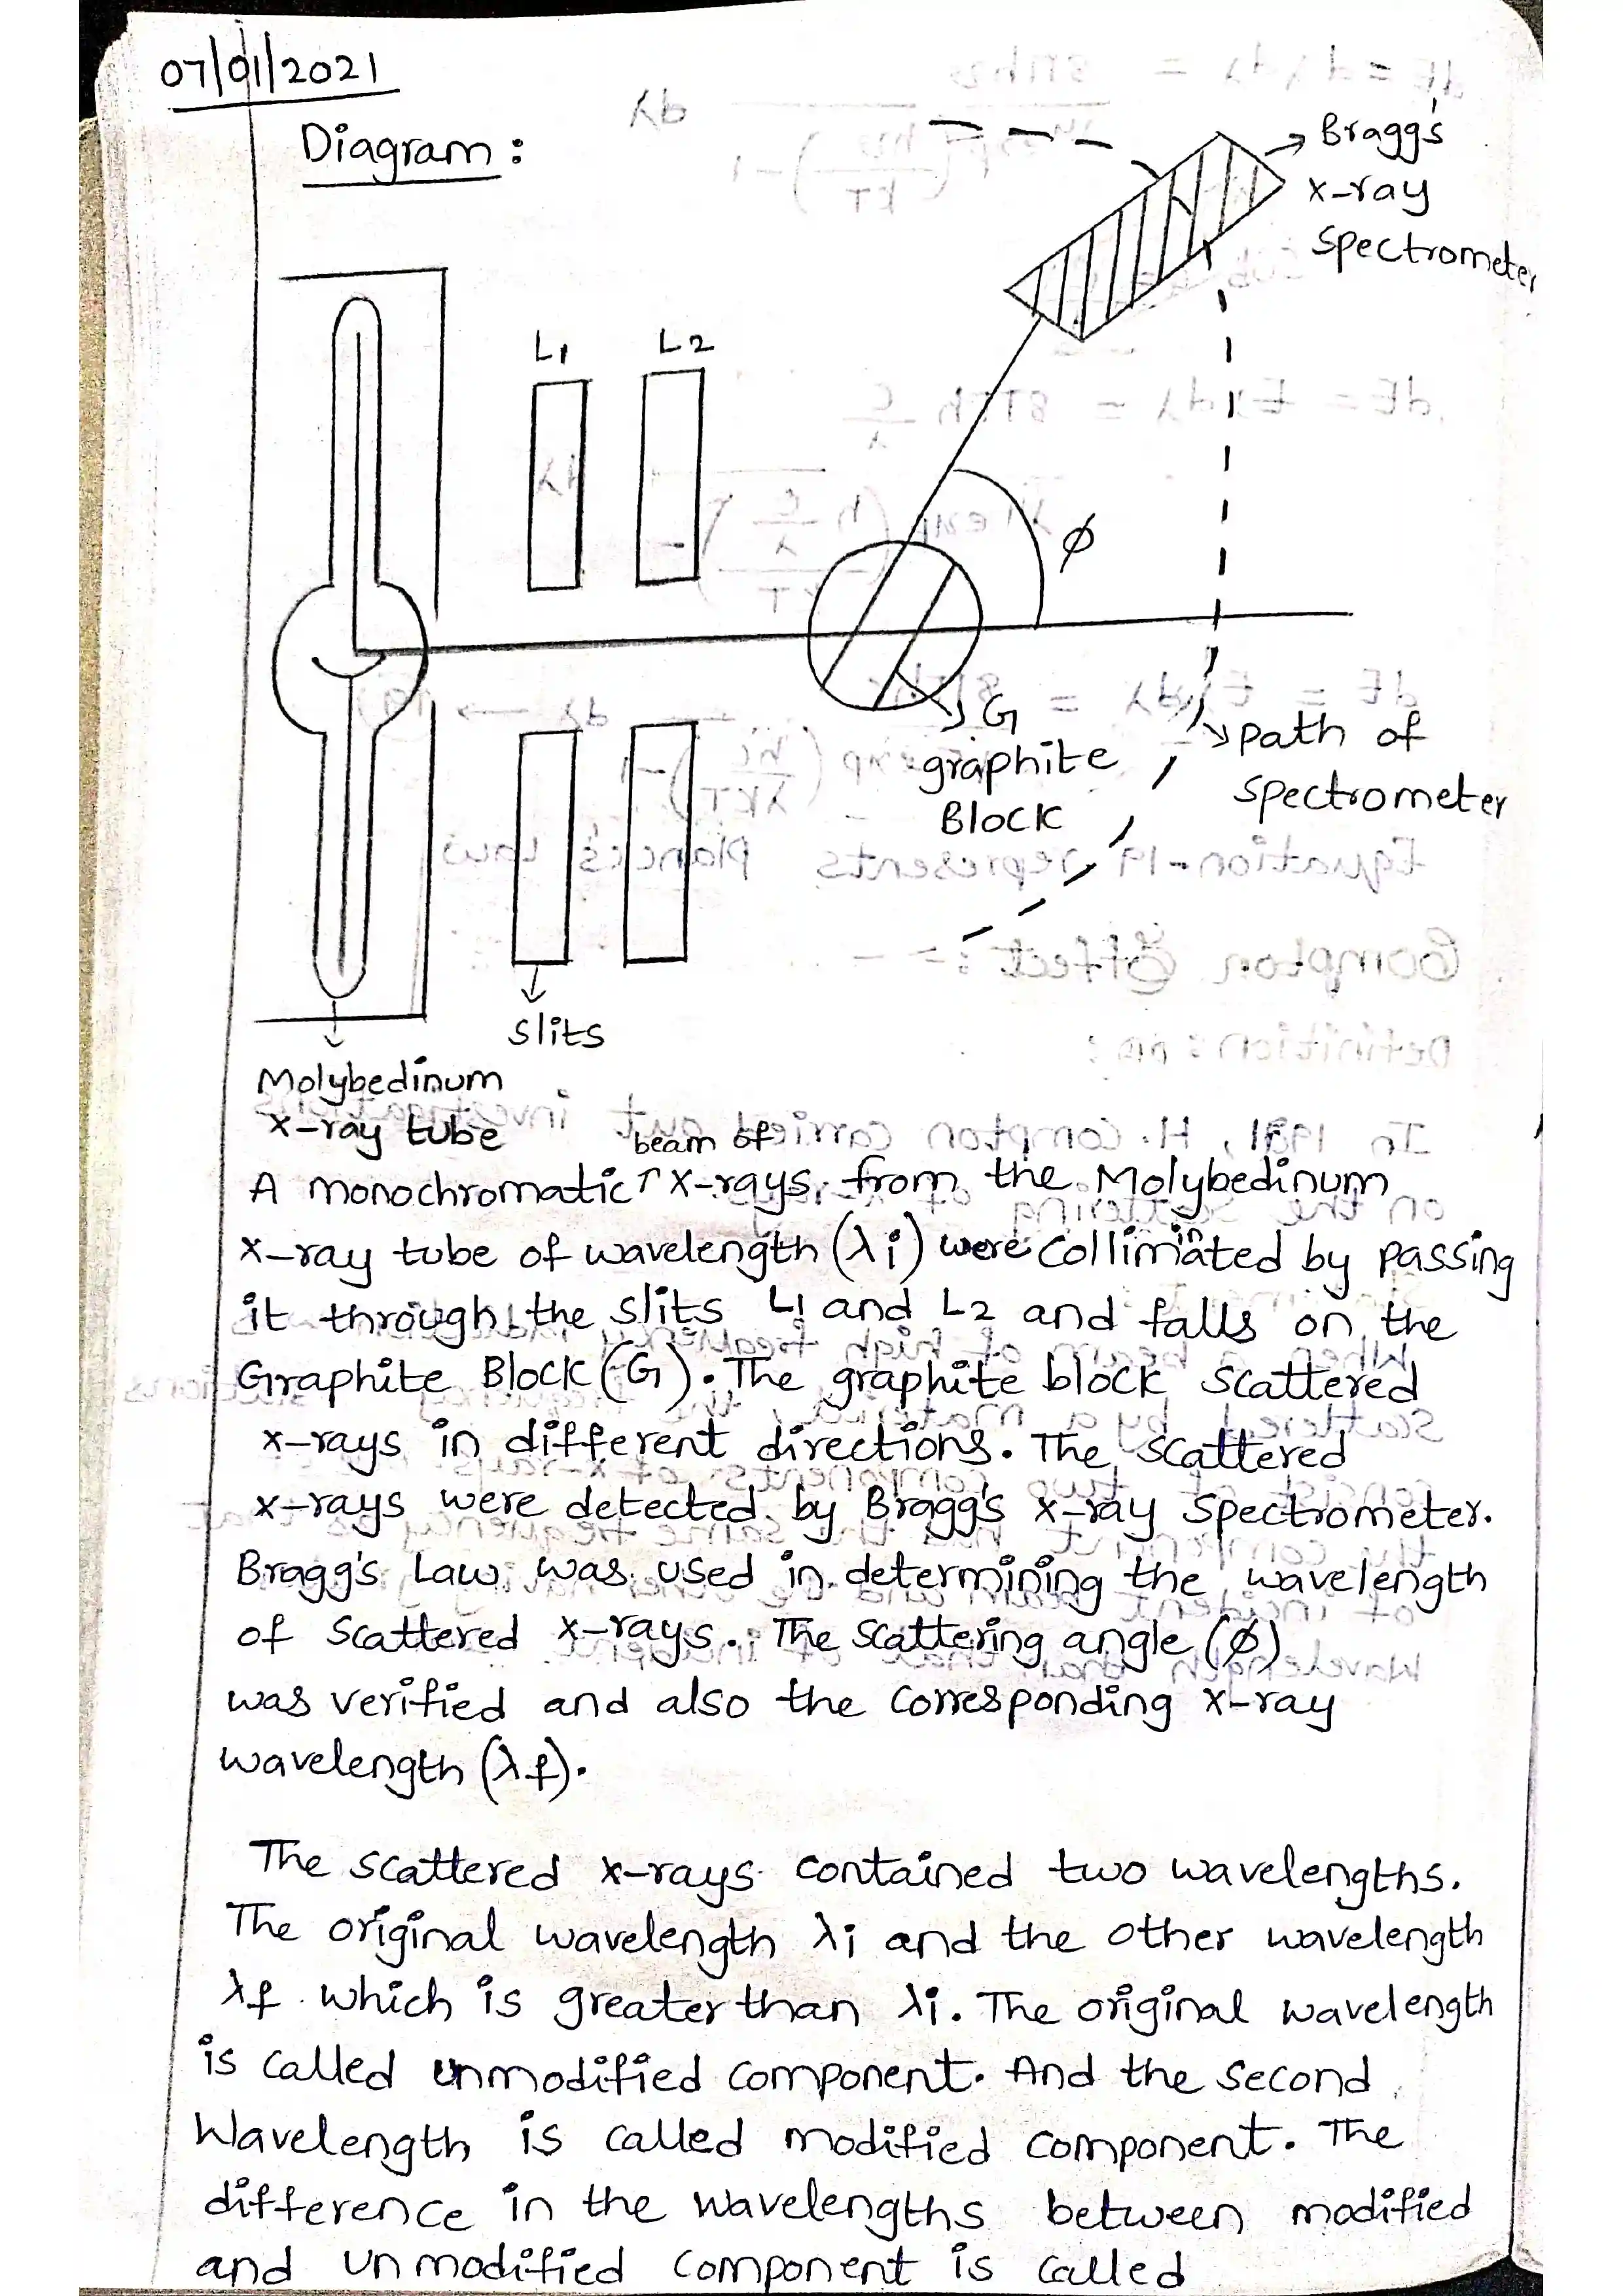 07/01/2021
Diagram :
Bragg's
x-ray
spectrometer
L1
L2
φ
G
graphite
Block
path of
spectrometer
slits
Molybedinum
x-ray tube
beam of
A monochromatic ↑ x-rays from the Molybedinum
x-ray tube of wavelength (λi) were collimated by passing
in
it through the slits L1 and L2 and falls on the
Graphite Block (G). The graphite block scattered
x-rays in different directions. The scattered
x-rays were detected by Bragg's x-ray spectrometer.
Bragg's Law was used in determining the wavelength
of scattered x-rays. The scattering angle (φ)
was verified and also the corresponding x-ray
wavelength (λf).
The scattered x-rays contained two wavelengths.
The original wavelength λi and the other wavelength
λf which is greater than λi. The original wavelength
is called unmodified component. And the second
Wavelength is called modified component. The
difference in the wavelengths between modified
and unmodified component is called